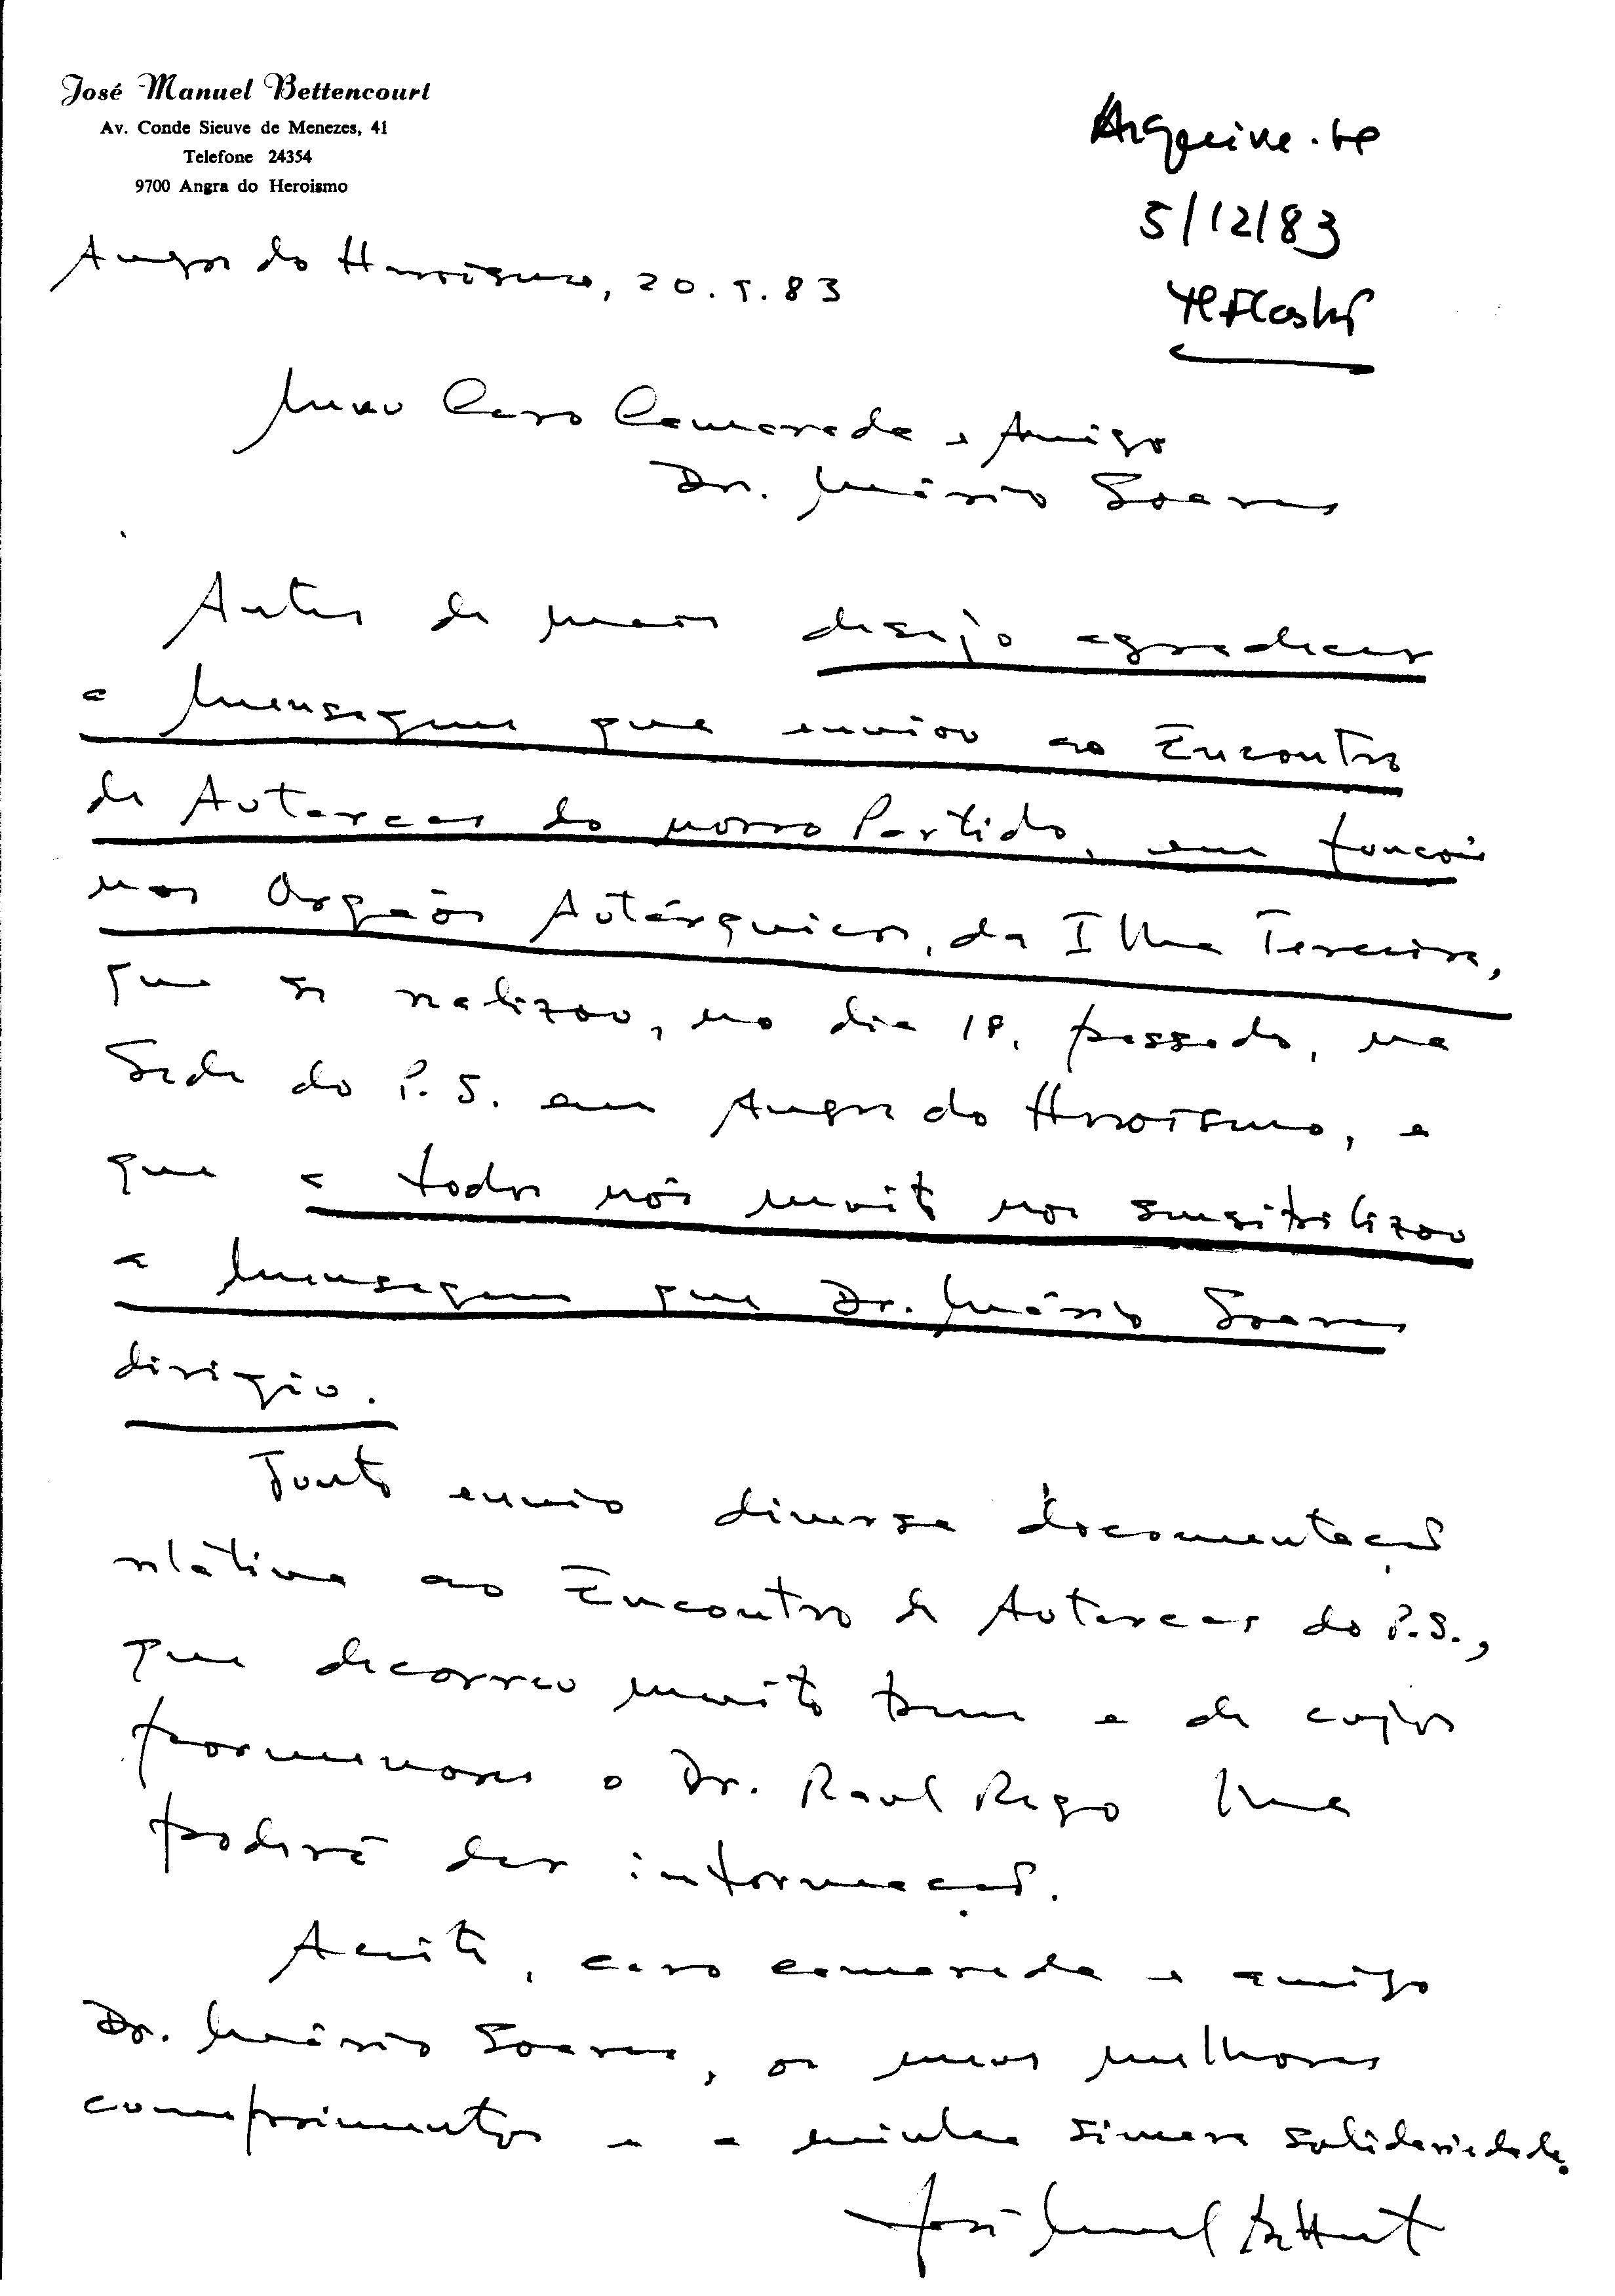 José Manuel Bettencourt
Av. Conde Sieuve de Menezes, 41
Telefone 24354
9700 Angra do Heroismo
Arquive-se
5/12/83
Angra do Heroismo, 20.5.83
Meu Caro Camarada e Amigo
Dr. Mário Soares
Antes de mais desejo agradecer
a Mensagem que enviou ao Encontro
de Autarcas do nosso Partido, em funções
nos Orgãos Autárquicos, da Ilha Terceira,
que se realizou, no dia 18, passado, na
Sede do P.S. em Angra do Heroismo, e
que a todos nós muito nos sensibilizou
a Mensagem que Dr. Mário Soares
dirigiu.
Junto envio diversa documentação
relativa ao Encontro de Autarcas do P.S.,
que decorreu muito bem e de cujos
pormenores o Dr. Raul Rego lhe
poderá dar informação.
Aceite, caro camarada e amigo
Dr. Mário Soares, os meus melhores
comprimentos e a minha sincera solidariedade.
José Manuel Bettencourt